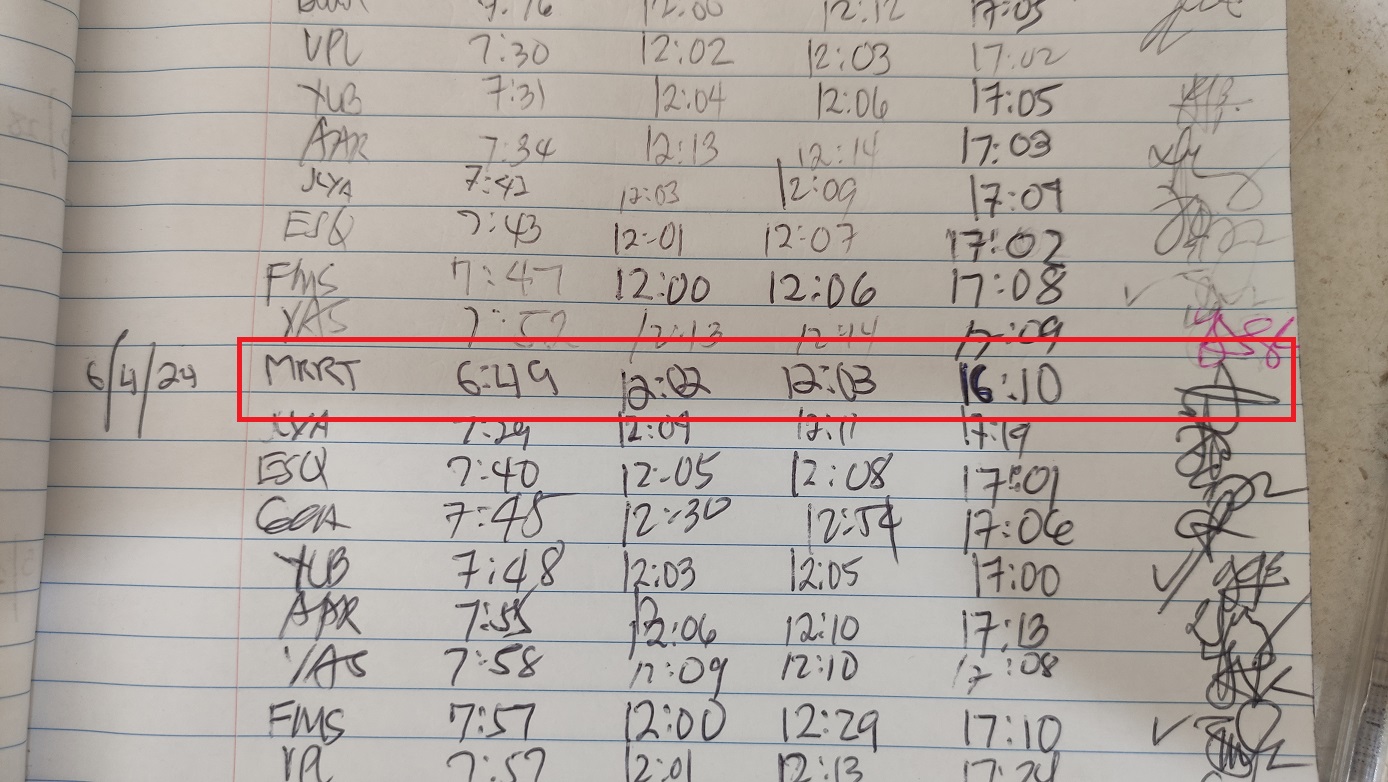 12:00 12:12 17:05
VPL 7:30 12:02 12:03 17:02
YUB 7:31 12:04 12:06 17:05
AAR 7:34 12:13 12:14 17:03
XYA 7:42 12:03 12:09 17:09
ESQ 7:43 12:01 12:07 17:02
FMS 7:47 12:00 12:06 17:08
YAS 7:52 12:13 12:14 17:09
6/4/24 MRRT 6:49 12:02 12:03 16:10
XYA 7:29 12:09 12:11 17:19
ESQ 7:40 12:05 12:08 17:01
7:45 12:30 12:54 17:06
YUB 7:48 12:03 12:05 17:00
AAR 7:55 12:06 12:10 17:13
YAS 7:58 12:09 12:10 17:08
FMS 7:57 12:00 12:29 17:10
VPL 7:57 12:01 12:13 17:24